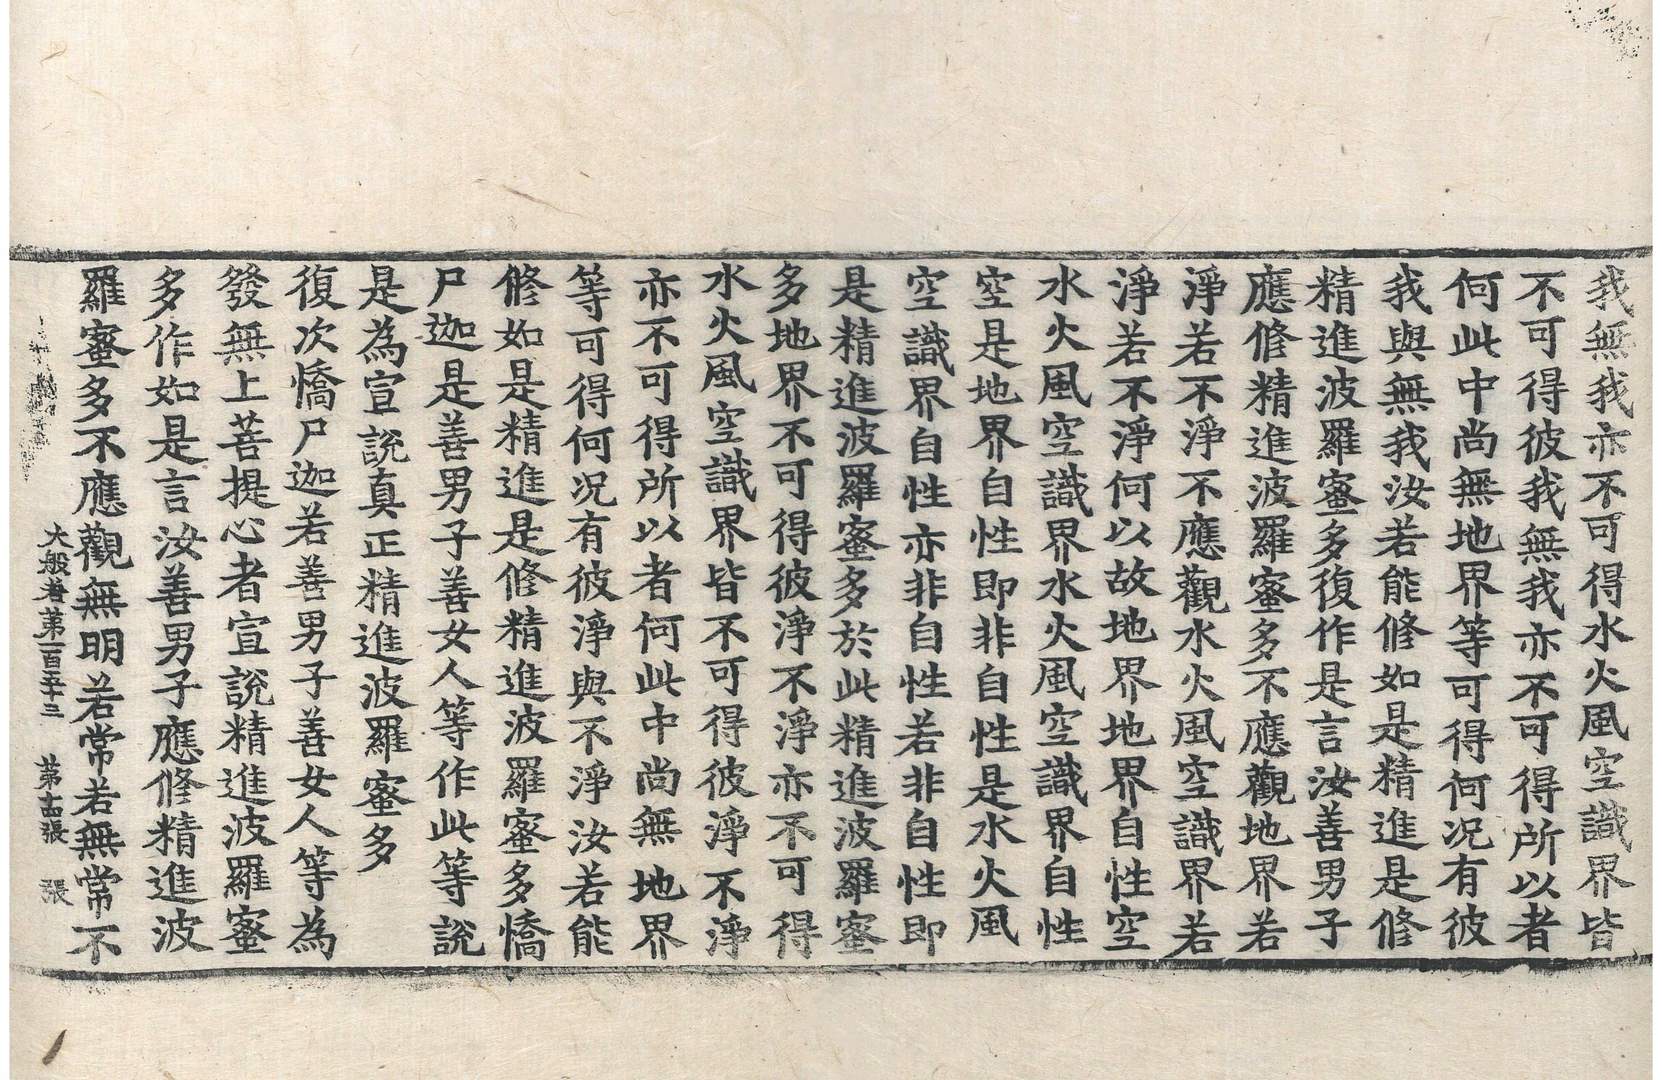 我無我亦不可得水火風空識界皆
不可得彼我無我亦不可得所以者
何此中尚無地界等可得何況有彼
我與無我汝若能修如是精進是修
精進波羅蜜多復作是言汝善男子
應修精進波羅蜜多不應觀地界若
淨若不淨不應觀水火風空識界若
淨若不淨何以故地界地界自性空
水火風空識界水火風空識界自性
空是地界自性即非自性是水火風
空識界自性亦非自性若非自性即
是精進波羅蜜多於此精進波羅蜜
多地界不可得彼淨不淨亦不可得
水火風空識界皆不可得彼淨不淨
亦不可得所以者何此中尚無地界
等可得何況有彼淨與不淨汝若能
修如是精進是修精進波羅蜜多憍
尸迦是善男子善女人等作此等說
是為宣說真正精進波羅蜜多
復次憍尸迦若善男子善女人等為
發無上菩提心者宣說精進波羅蜜
多作如是言汝善男子應修精進波
羅蜜多不應觀無明若常若無常不
大般若第一百五十三 第十四張 張